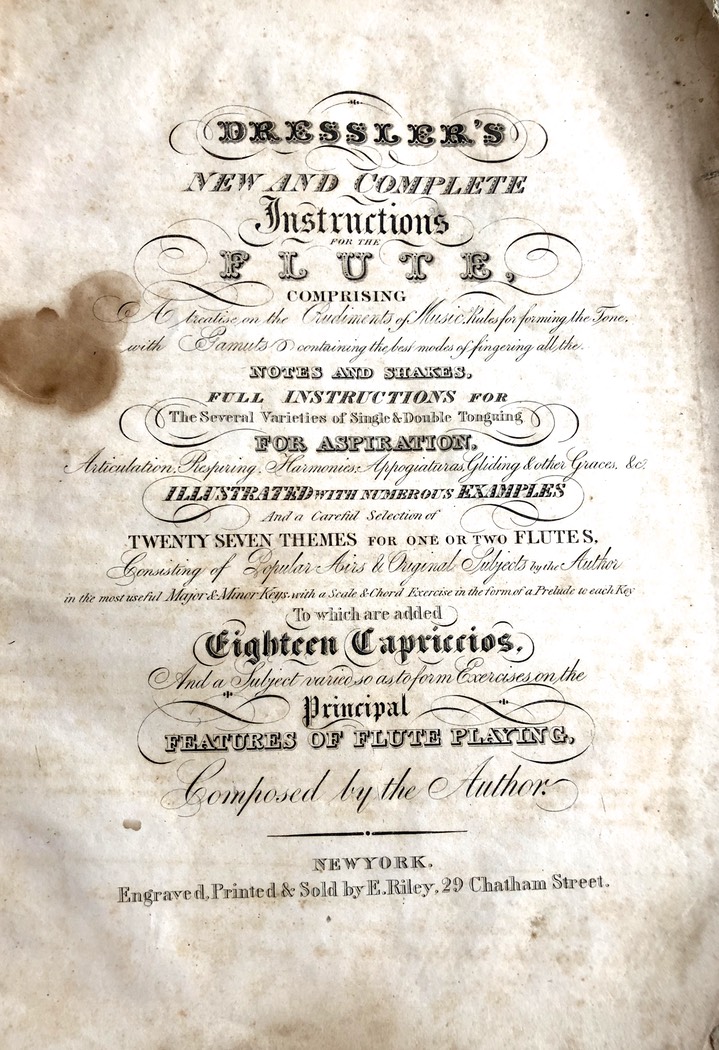 DRESSLER'S
NEW AND COMPLETE
Instructions
FOR THE
FLUTE,
COMPRISING
A treatise on the Rudiments of Music, Rules for forming the Tone,
with Gamuts & containing the best modes of fingering all the
NOTES AND SHAKES,
FULL INSTRUCTIONS FOR
The Several Varieties of Single & Double Tonguing
FOR ASPIRATION,
Articulation, Respiring, Harmonies, Appogiaturas, Gliding & other Graces, &c.
ILLUSTRATED WITH NUMEROUS EXAMPLES
And a Careful Selection of
TWENTY SEVEN THEMES FOR ONE OR TWO FLUTES,
Consisting of Popular Airs & Original Subjects by the Author
in the most useful Major & Minor Keys, with a Scale & Chord Exercise in the form of a Prelude to each Key
To which are added
Eighteen Capriccios,
And a Subject varied so as to form Exercises on the
Principal
FEATURES OF FLUTE PLAYING,
Composed by the Author.
NEWYORK.
Engraved, Printed & Sold by E. Riley, 29 Chatham Street.